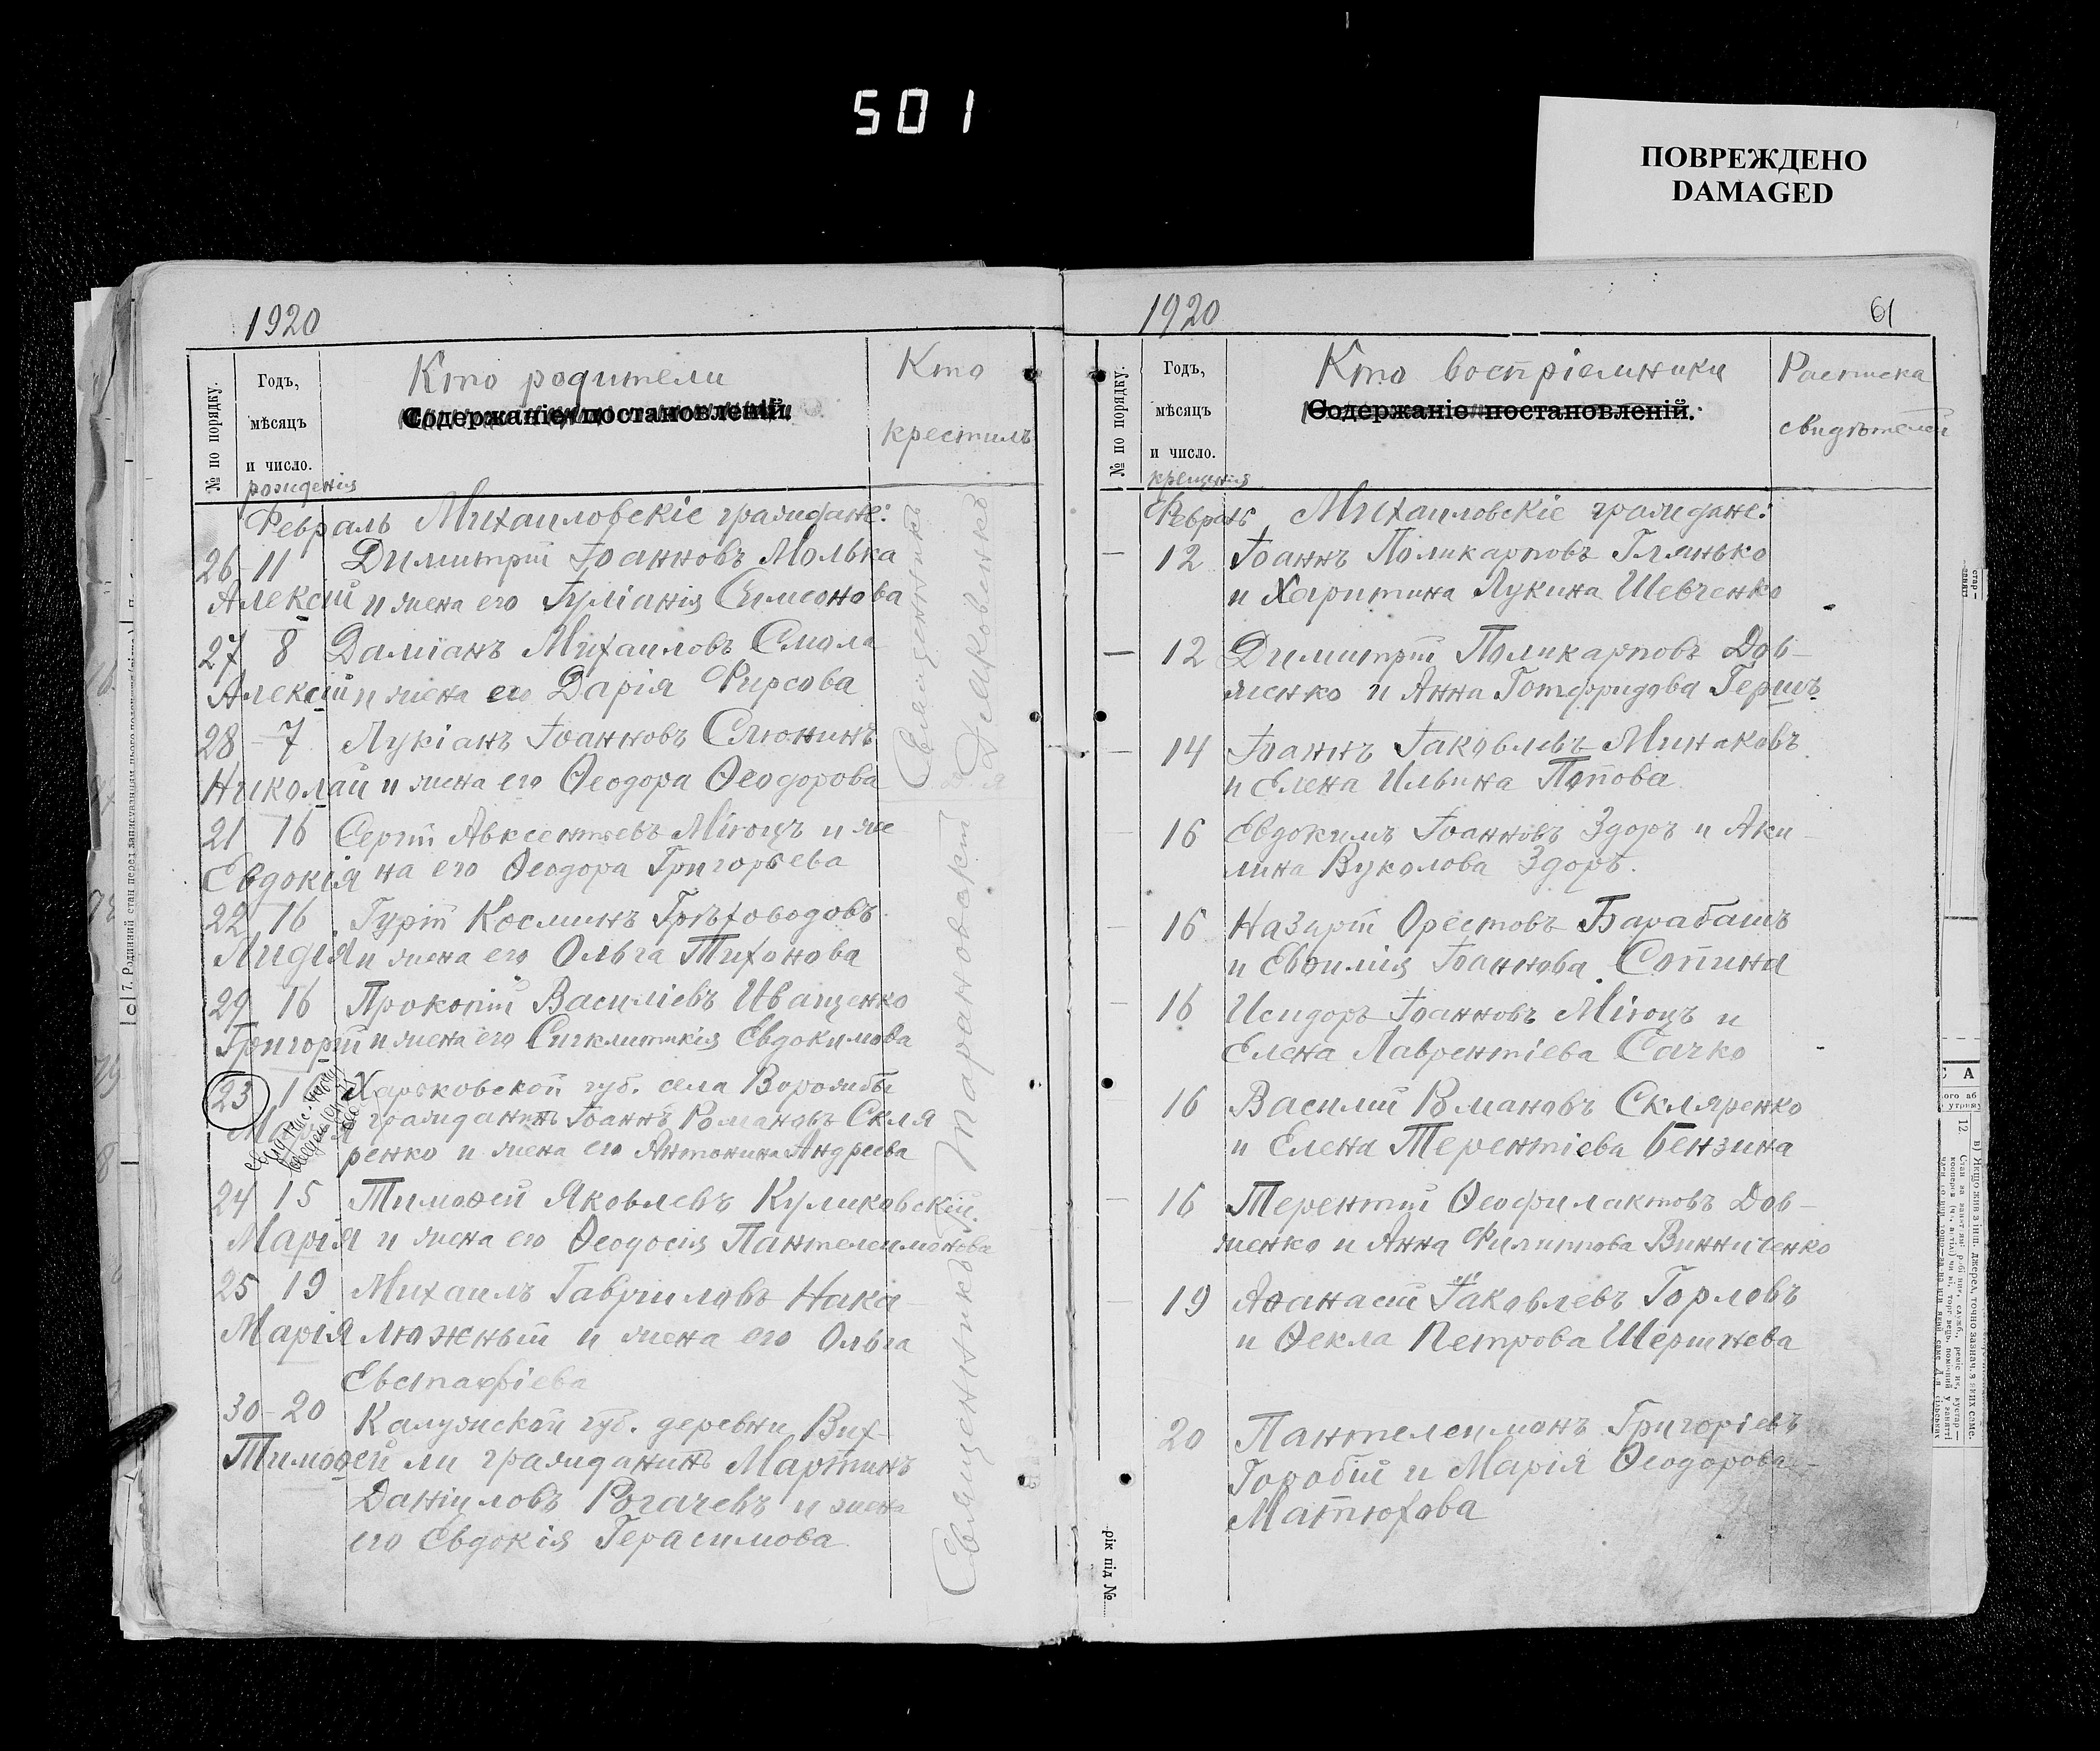 501
ПОВРЕЖДЕНО
DAMAGED
1920
№ по порядку.
Годъ,
мѣсяцъ
и число.
рожденія
Кто родители
Содержаніе постановленій.
Кто
крестилъ
Февраль Михаиловскіе граждане:
26 11 Димитрій Іоанновъ Молька
Алексій и жена его Іуліанія Симеонова
27 8 Даміанъ Михаиловъ Смола
Алексій и жена его Дарія Фирсова
28 - 7 Лукіанъ Іоанновъ Слюнинъ
Николай и жена его Ѳеодора Ѳеодорова
21 16 Сергій Авксентіевъ Мірощъ и же
Евдокія на его Ѳеодора Григорьева
22 16 Гурій Косминъ Грѣховодовъ
Лидія и жена его Ольга Тихонова
29 16 Прокопій Василіевъ Иващенко
Григорій и жена его Сигклитикія Евдокимова
23 1 Харьковской губ. села Ворожбы
Марія гражданинъ Іоаннъ Романовъ Скля
ренко и жена его Антонина Андреева
24 15 Тимоѳей Яковлевъ Куликовскій.
Марія и жена его Ѳеодосія Пантелеимонова
25 19 Михаилъ Гавриловъ Нака
Марія люжный и жена его Ольга
Евстафіева
30 - 20 Калужской губ. деревни Вих-
Тимоѳей ли гражданинъ Мартинъ
Даніиловъ Рогачевъ и жена
его Евдокія Герасимова
Священникъ
Дяковенко
Священникъ Тарановскій
1920
61
№ по порядку.
Годъ,
мѣсяцъ
и число.
крещенія
Кто воспріемники
Содержаніе постановленій.
Расписка
свидѣтелей
Февраль Михаиловскіе граждане:
12 Іоаннъ Поликарповъ Глянько
и Харитина Лукина Шевченко
12 Димитрій Поликарповъ Дов-
женко и Анна Готфридова Гершъ
14 Іоаннъ Іаковлевъ Минаковъ
и Елена Ильина Попова
16 Евдокимъ Іоанновъ Здоръ и Аки-
лина Вуколова Здоръ.
16 Назарій Орестовъ Барабашъ
и Евѳимія Іоаннова Сопина
16 Исидоръ Іоанновъ Мірощъ и
Елена Лаврентіева Сачко
16 Василій Романовъ Скляренко
и Елена Терентіева Бензина
16 Терентій Ѳеофилактовъ Дов-
женко и Анна Филиппова Винниченко
19 Аѳанасій Іаковлевъ Горловъ
и Ѳекла Петрова Шершнева
20 Пантелеимонъ Григоріевъ
Горобій и Марія Ѳеодорова
Матюхова
рік під №